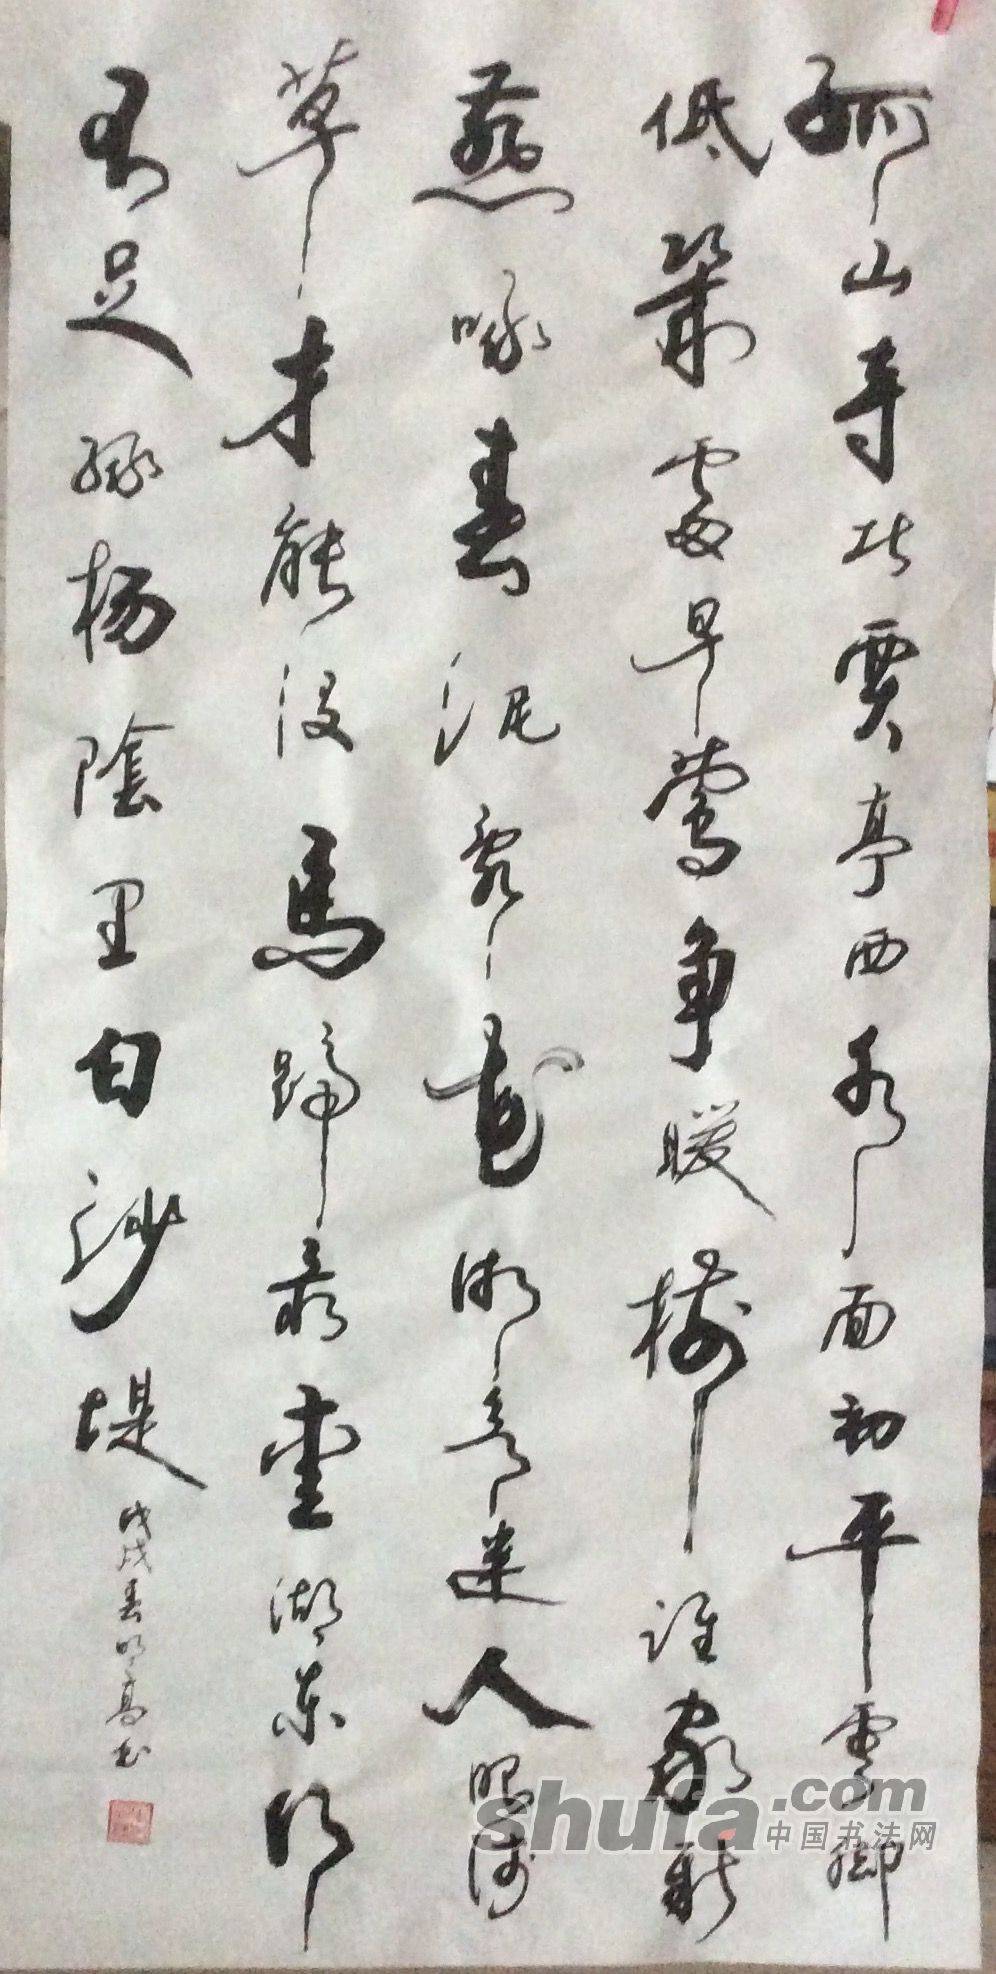 孤山寺北賈亭西水面初平雲脚
低幾處早莺争暖樹誰家新
燕啄春泥亂花渐欲迷人眼浅
草才能没馬蹄最爱湖东行
不足绿杨陰里白沙堤
戊戌春明高书
shufa.com
中国书法网